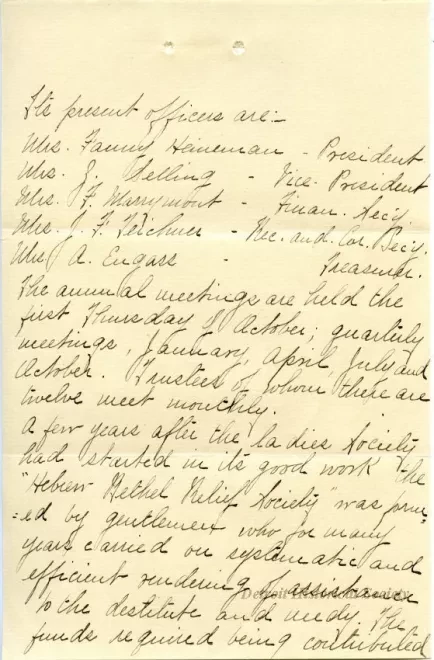 Its present officers are:-
Mrs. Fanny Heineman - President
Mrs. Z. Selling - Vice-President
Mrs. F. Marymont - Finan. Secy.
Mrs. J. F. Teichner - Rec. and. Cor. Secy.
Mrs A. Engass - Treasurer.
The annual meetings are held the
first Thursday of October; quarterly
meetings, January, April, July and
October. Trustees of whom there are
twelve meet monthly.
A few years after the ladies Society
had started in its good work the
"Hebrew Bethel Relief Society" was form
=ed by gentlemen who for many
years carried on systematic and
efficient rendering of assistance
to the destitute and needy. The
funds required being contributed